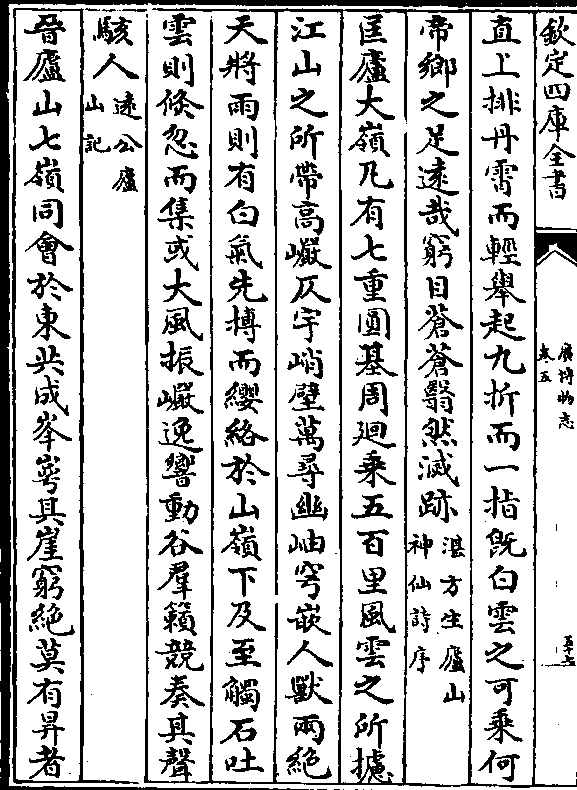 欽定四庫全書
廣博物志
卷五
直上排丹霄而輕舉起九折而一指旣白雲之可乘何
帝鄉之足遠哉窮目蒼蒼翳然滅跡湛方生廬山神仙詩序
匡廬大嶺凡有七重圓基周迴乗五百里風雲之所攄
江山之所帶高巗仄宇峭壁萬尋幽岫穹嵌人獸兩絶
天將雨則有白氣先摶而纓絡於山嶺下及至觸石吐
雲則倐忽而集或大風振巗逸響動谷羣籟競奏其聲
駭人遠公廬山記
晉廬山七嶺同會於東共成峯崿其崖窮絶莫有昇者